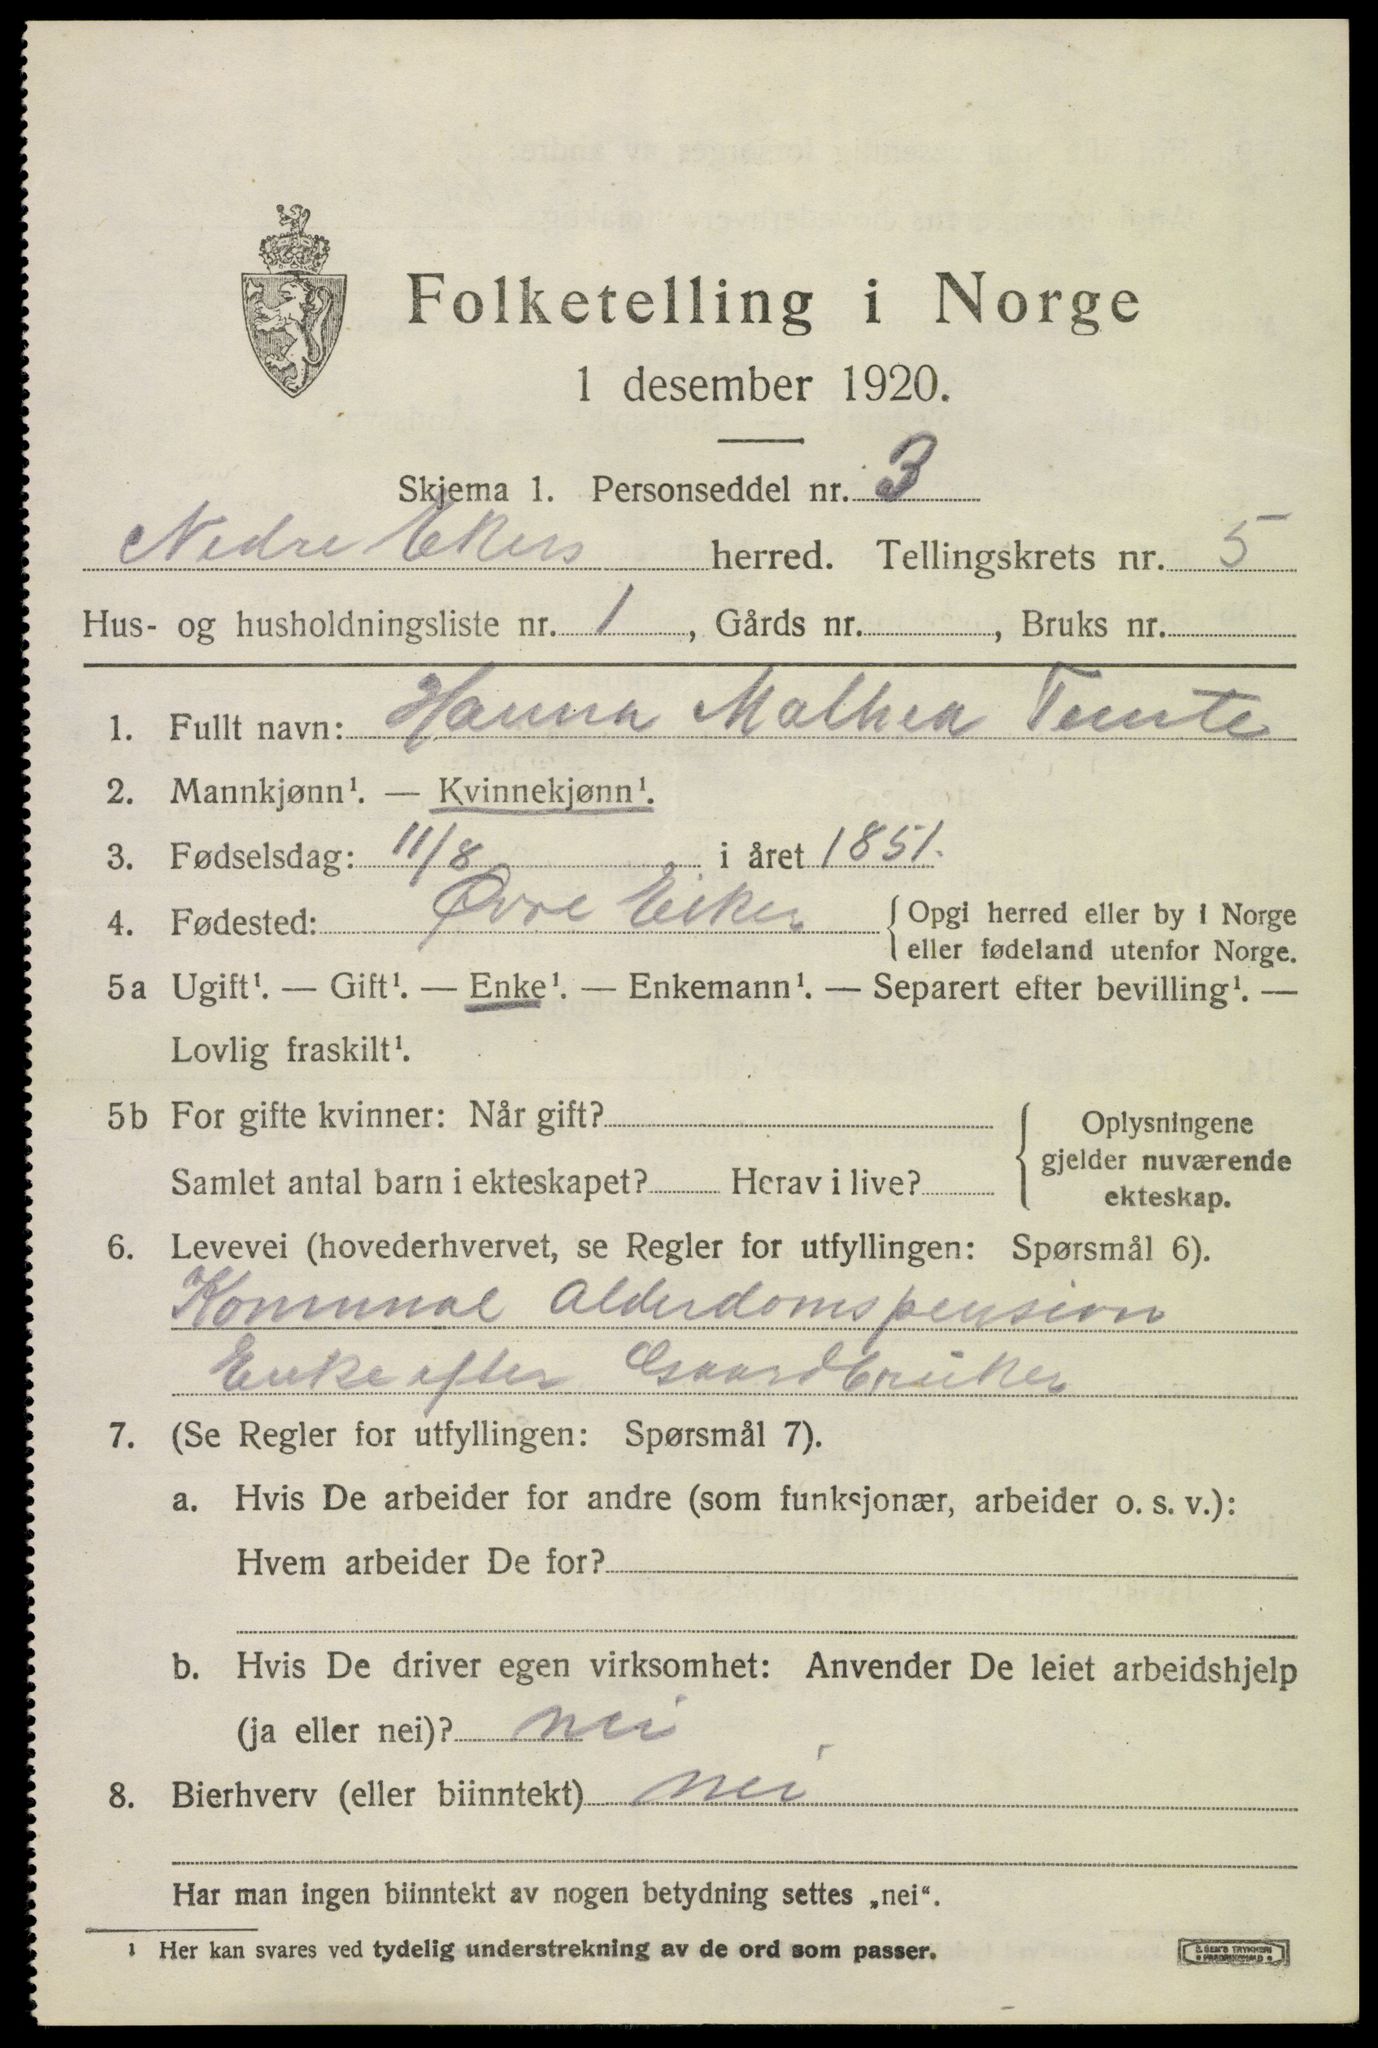 Folketelling i Norge
1 desember 1920.
Skjema 1. Personseddel nr. 3
Nedre Ekers herred. Tellingskrets nr. 5
Hus- og husholdningsliste nr. 1, Gårds nr. , Bruks nr.
1. Fullt navn: Hanna Mathea Temte
2. Mannkjønn¹. — Kvinnekjønn¹.
3. Fødselsdag: 11/8 i året 1851.
4. Fødested: Øvre Eiker { Opgi herred eller by i Norge
eller fødeland utenfor Norge.
5a Ugift¹. — Gift¹. — Enke¹. — Enkemann¹. — Separert efter bevilling¹. —
Lovlig fraskilt¹.
5b For gifte kvinner: Når gift? { Oplysningene
gjelder nuværende
Samlet antal barn i ekteskapet? Herav i live? ekteskap.
6. Levevei (hovederhvervet, se Regler for utfyllingen: Spørsmål 6).
Komunal Alderdomspension
Enke efter Gaardbruker
7. (Se Regler for utfyllingen: Spørsmål 7).
a. Hvis De arbeider for andre (som funksjonær, arbeider o. s. v.):
Hvem arbeider De for?
b. Hvis De driver egen virksomhet: Anvender De leiet arbeidshjelp
(ja eller nei)? nei
8. Bierhverv (eller biinntekt) nei
Har man ingen biinntekt av nogen betydning settes „nei“.
¹ Her kan svares ved tydelig understrekning av de ord som passer.